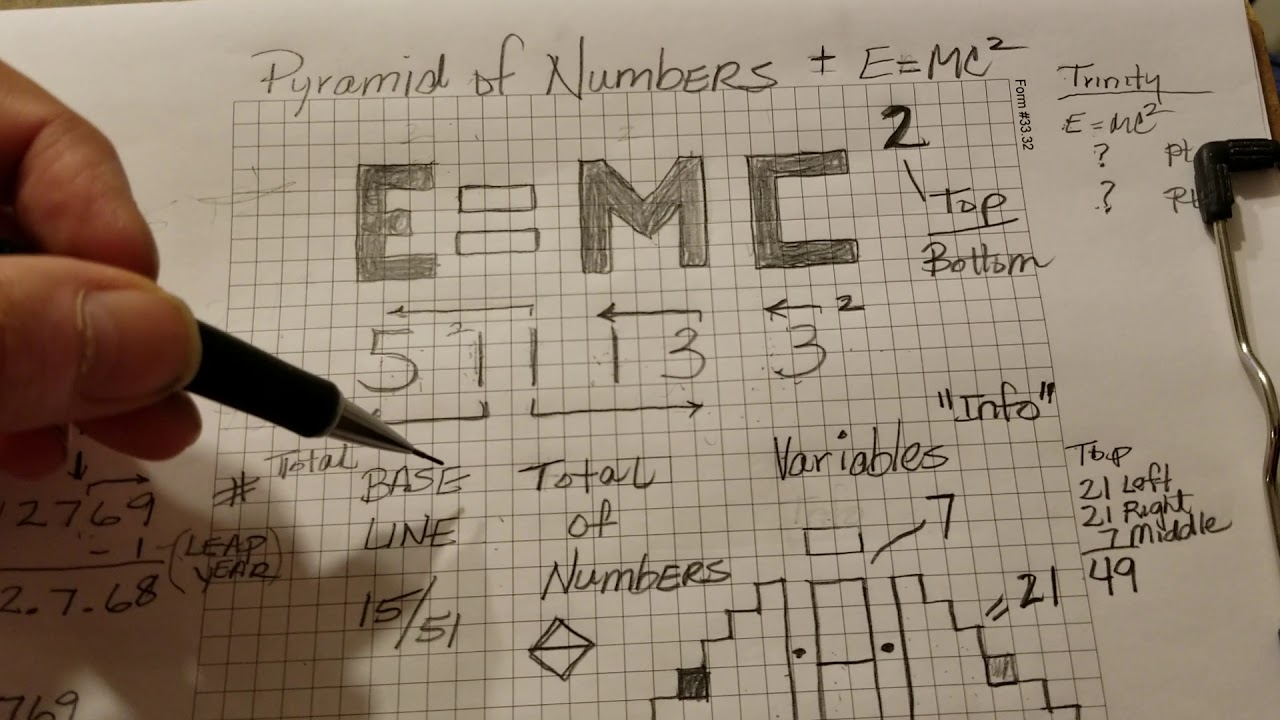 Pyramid of Numbers ± E=MC²
Form #33.32
Trinity
E=MC²
? pt
? pt
E=MC²
Top
Bottom
5 1 1 1 3 3 ²
"Info"
# Total
BASE
LINE
15/51
Total
of
Numbers
Variables
7
= 21
Top
21 Left
21 Right
7 Middle
49
12769
- 1 (LEAP
YEAR)
2.7.68
769